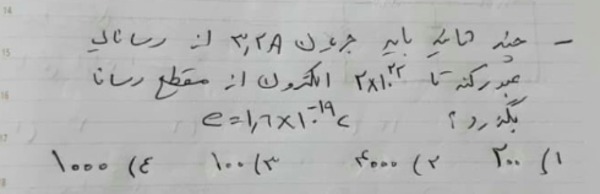 - چند ثانیه باید جریان ۳٫۲A از رسانای
عبور کند تا ۲×۱۰^۲۲ الکترون از مقطع رسانا
بگذرد؟ e=۱٫۶×۱۰^-۱۹ c
۱) ۲۰۰ ۲) ۴۰۰۰ ۳) ۱۰۰ ۴) ۱۰۰۰